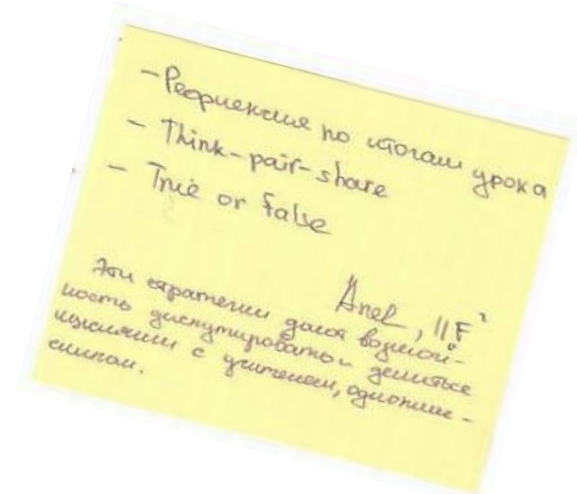 - Рефлексия по итогам урока
- Think-pair-share
- True or false
Anel, 11F
Эти стратегии дают возмож-
ность диспутировать и делиться
мыслями с учителем, одноклас-
сниками.